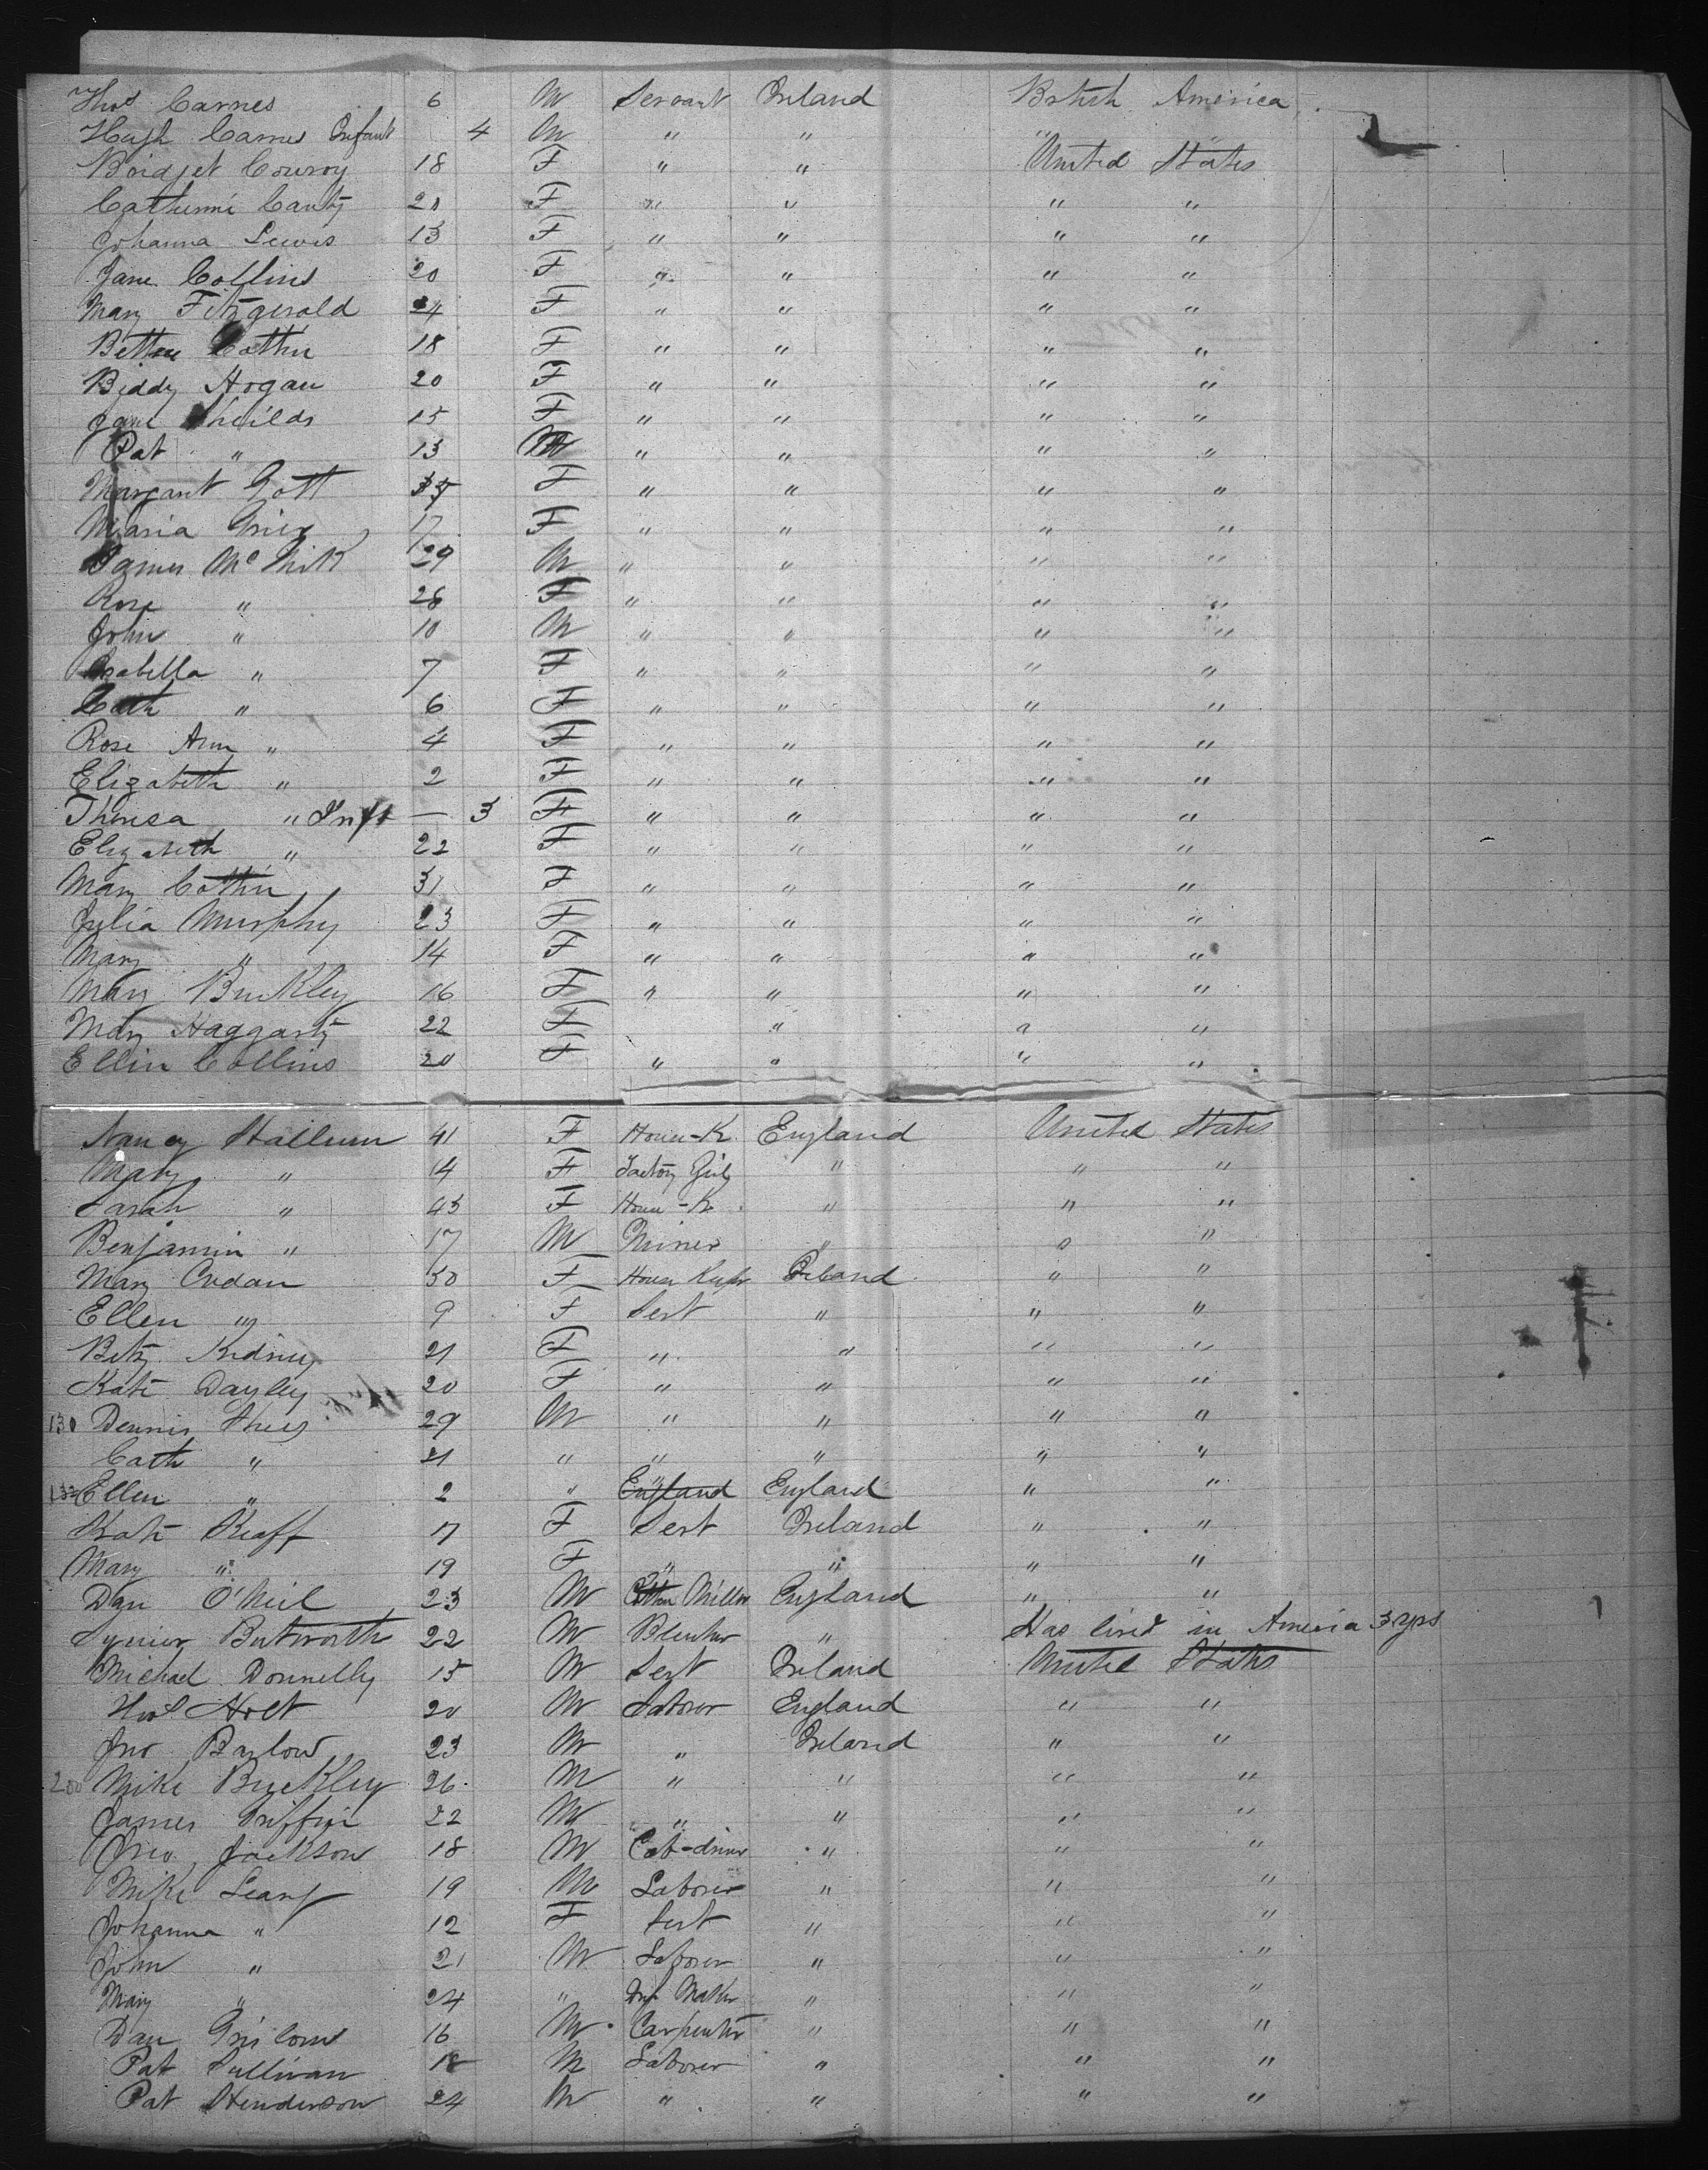 Thos Carnes 6 M Servant Ireland British America
Hugh Carnes Infant 4 M " " " "
Bridget Conroy 18 F " " United States
Catherine Canty 20 F " " " "
Johanna Lewis 13 F " " " "
Jane Collins 20 F " " " "
Mary Fitzgerald 24 F " " " "
18 F " " " "
Biddy Hogan 20 F " " " "
Jane Sheilds 15 F " " " "
Pat " 13 M " " " "
Margaret Gott F " " " "
Maria 17 F " " " "
James Mc 29 M " " " "
Rose " 28 F " " " "
John " 10 M " " " "
Isabella " 7 F " " " "
Cath " 6 F " " " "
Rose Ann " 4 F " " " "
Elizabeth " 2 F " " " "
Theresa " Inft — 3 F " " " "
Elizabeth " 22 F " " " "
Mary 31 F " " " "
Julia Murphy 23 F " " " "
Mary " 14 F " " " "
Mary Buckley 16 F " " " "
Mary Haggarty 22 F " " "
Ellin Collins 20 F " " " "
Nancy Hallum 41 F House-K. England United States
Mary " 14 F Factory Girl " " "
Sarah " 43 F House-K. " " "
Benjamin " 17 M Miner " " "
Mary 50 F House Keepr Ireland " "
Ellen " 9 F Sert " " "
Kidney 21 F " " " "
Kate Dayley 20 F " " " "
130 Dennis 29 M " " " "
Cath " 21 " " " " "
132 Ellen " 2 " England England " "
Kate Keaff 17 F Sert Ireland " "
Mary " 19 F " " " "
Dan O'Neil 23 M Miller England " "
Butworth 22 M " Has lived in America 3 yrs
Michael Donnelly 15 M Sert Ireland United States
Thos Holt 20 M Laborer England " "
Jno Barlow 23 M " Ireland " "
200 Mike Buckley 26 M " " " "
James Griffin 22 M " " " "
Jno Jackson 18 M Cab-driver " " "
Mike Leary 19 M Laborer " " "
Johanna " 12 F Sert " " "
John " 21 M Laborer " " "
Mary " 24 " Maker " " "
Dan 16 M Carpenter " " "
Pat Sullivan 18 M Laborer " " "
Pat Henderson 24 M " " " "